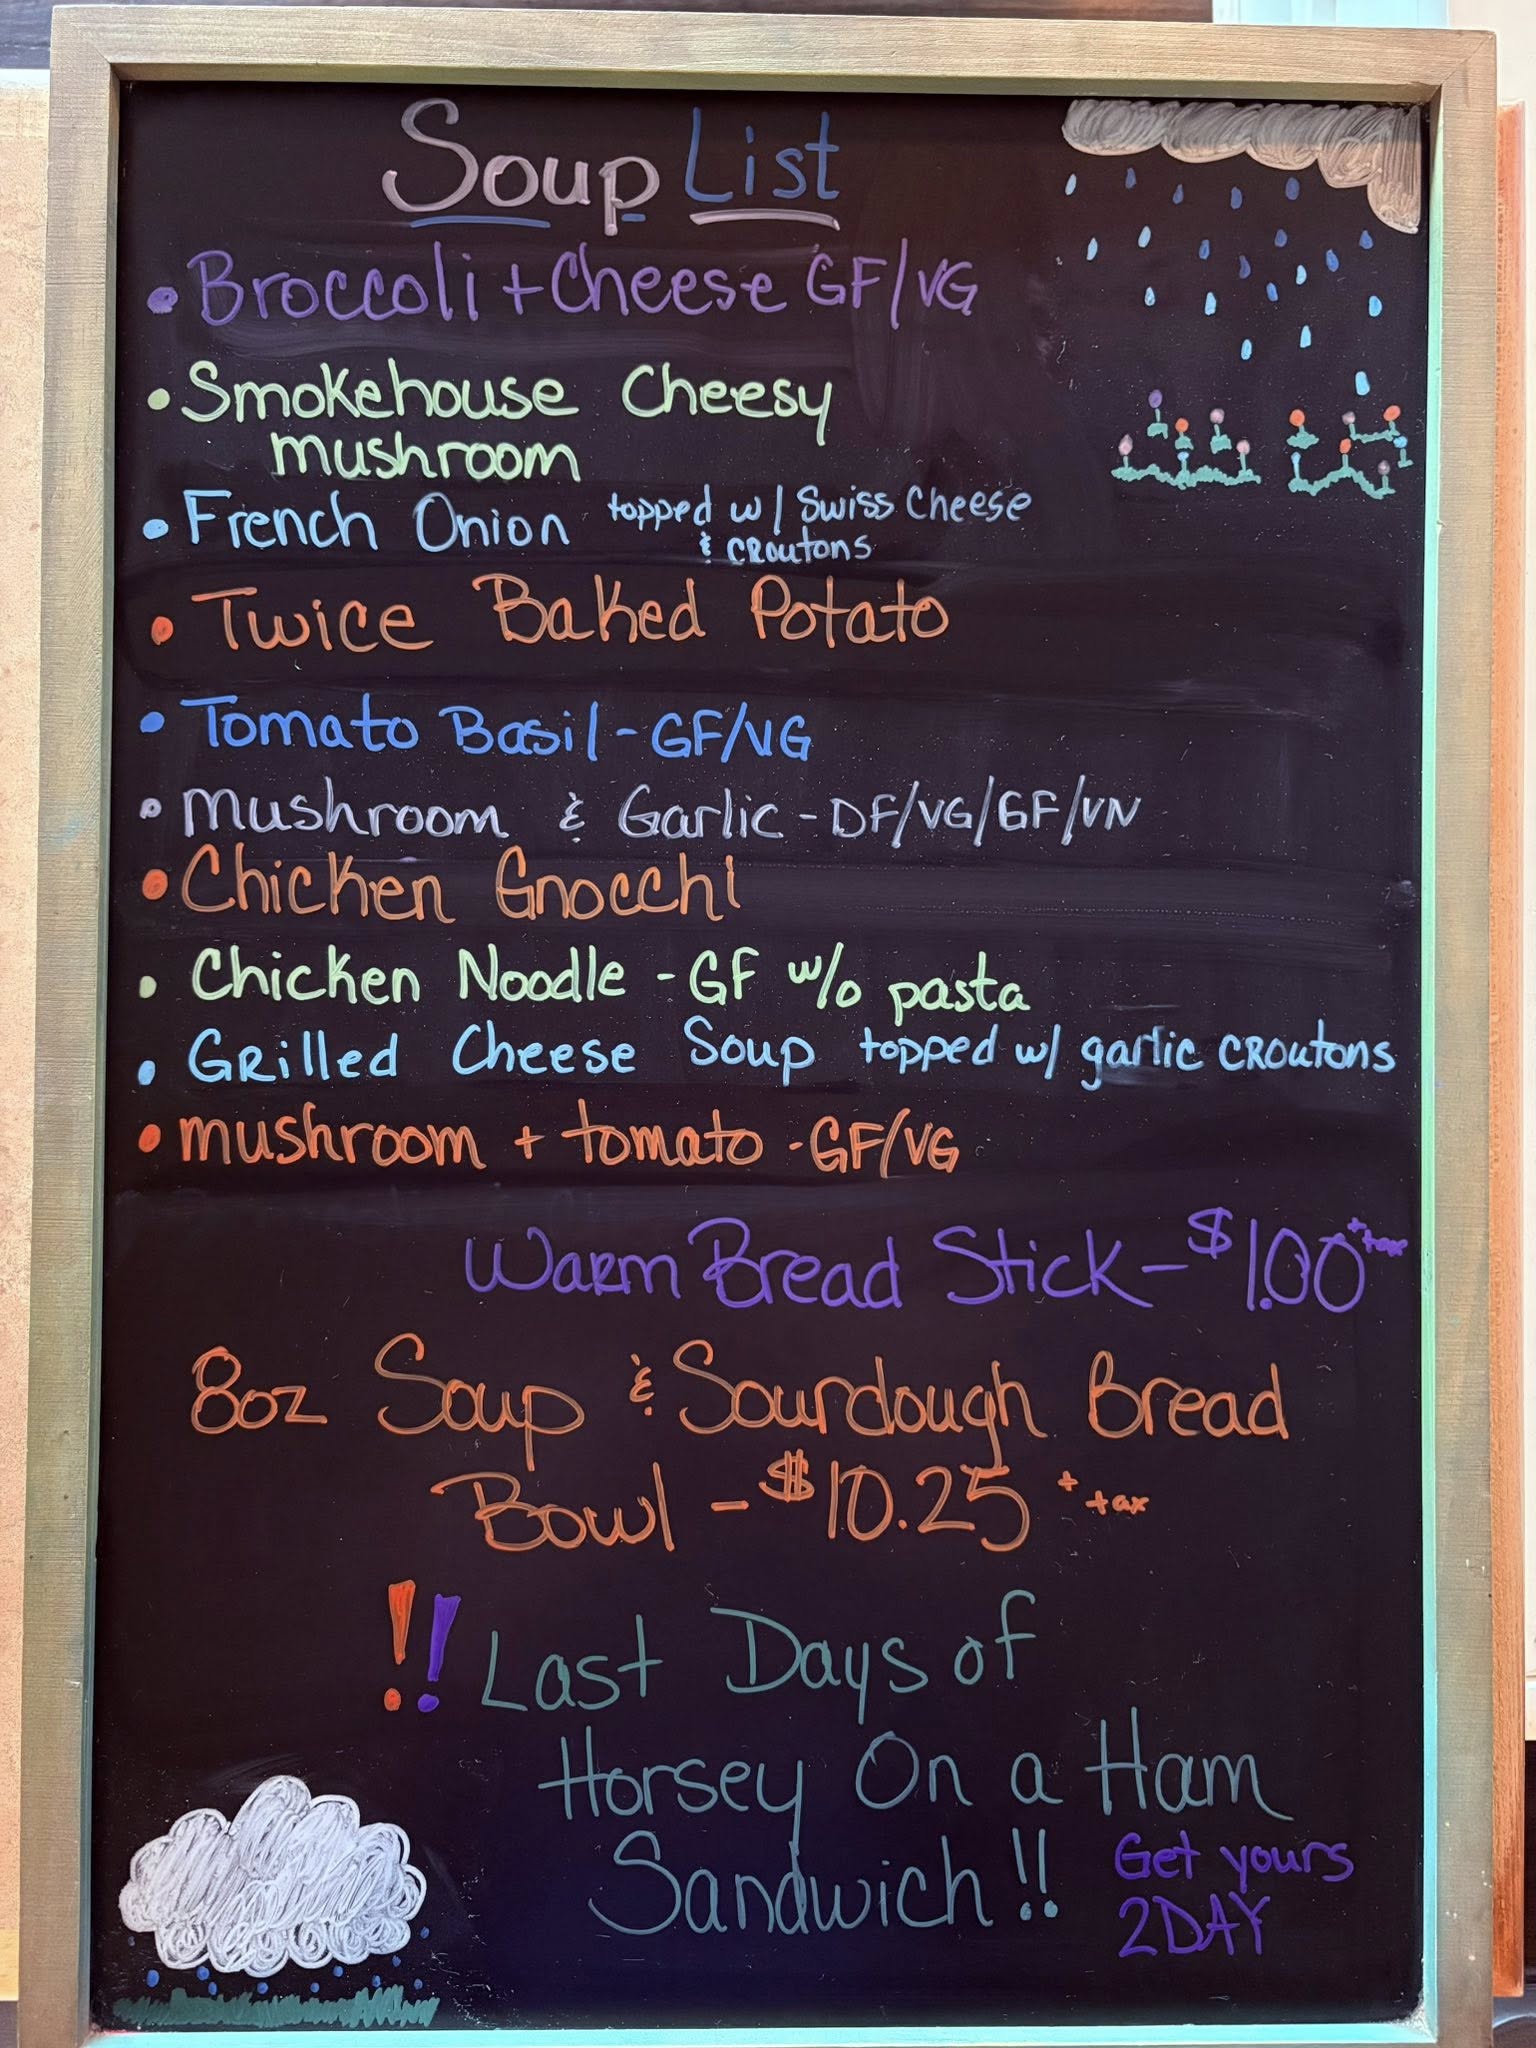 Soup List
• Broccoli + Cheese GF/VG
• Smokehouse Cheesy
mushroom
• French Onion topped w/ Swiss Cheese
& CROutons
• Twice Baked Potato
• Tomato Basil - GF/VG
• mushroom & Garlic - DF/VG/GF/VN
• Chicken Gnocchi
• Chicken Noodle - GF w/o pasta
• GRilled Cheese Soup topped w/ garlic CROutons
• mushroom + tomato - GF/VG
WaRm Bread Stick - $1.00 + tax
8oz Soup & Sourdough Bread
Bowl - $10.25 + tax
!! Last Days of
Horsey On a Ham
Sandwich!!
Get yours
2DAY